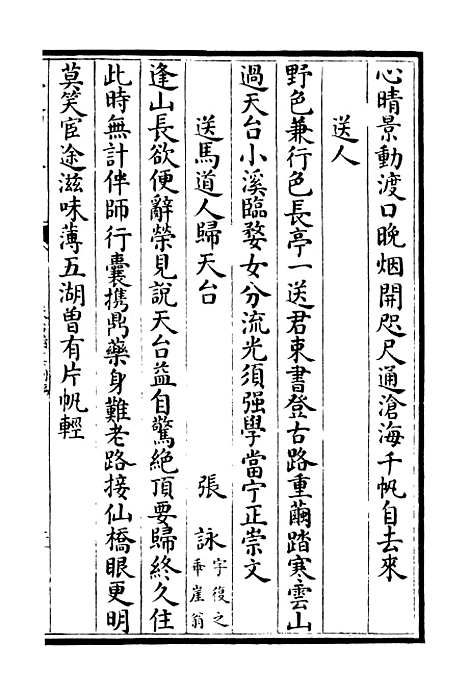 心晴景動渡口晚烟開咫尺通滄海千帆自去來
送人
野色兼行色長亭一送君束書登古路重繭踏寒雲山
過天台小溪臨婺女分流光須强學當宁正崇文
送馬道人歸天台 張詠字復之乖崖翁
逢山長欲便辭榮見說天台益自驚絶頂要歸終久住
此時無計伴師行囊携鼎藥身難老路接仙橋眼更明
莫笑宦途滋味薄五湖曾有片帆輕